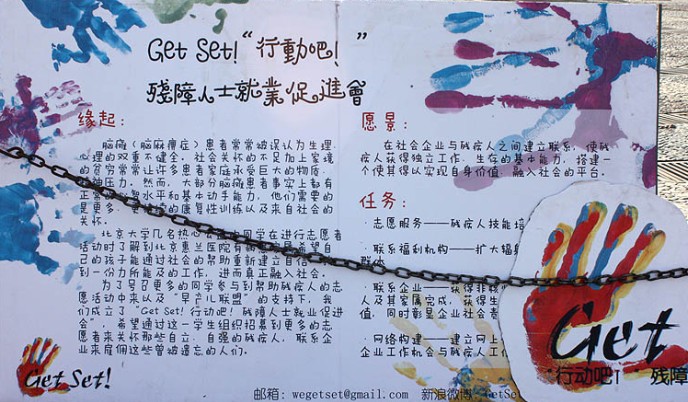 Get Set!“行動吧！”
殘障人士就業促進會
缘起：
脑瘫（脑麻痹症）患者常常被误认为生理、
心理的双重不健全。社会关怀的不足加上家境
的贫穷常常让许多患者家庭承受巨大的物质、
压力。然而，大部分脑瘫患者事实上都有
正常的 水平和基本动手能力，他们需要的
是更多、更 的康复性训练以及来自社会的
关怀。
北京大学几名热心 同学在进行志愿者
活动时了解到北京惠兰医院有 希望自
己的孩子能通过社会的帮助重新建立自信，
到一份力所能及的工作，进而真正融入社会。
为了号召更多的同学参与到帮助残疾人的志
愿活动中来以及“早产儿联盟”的支持下，我
们成立了“Get Set!行动吧！残障人士就业促进
会”，希望通过这一学生组织招募到更多的志
愿者来关怀那些自立、自强的残疾人，联系企
业来雇佣这些曾被遗忘的人们。
愿景：
在社会企业与残疾人之间建立联系，使残
疾人获得独立工作、生存的基本能力，搭建一
个使其得以实现自身价值、融入社会的平台。
任务：
·志愿服务——残疾人技能培
·联系福利机构——扩大辐射
群体
·联系企业——获得非残
人及其家属完成，获得生
值，同时彰显企业社会责
·网络构建——建立网上
企业工作机会与残疾人工作
Get Set!
Get
“行动吧！”残障
邮箱：wegetset@gmail.com 新浪微博：GetSet